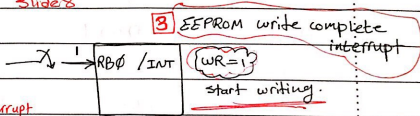 Slide 8
3 EEPROM write complete
interrupt
1 RBØ / INT WR=1
start writing.